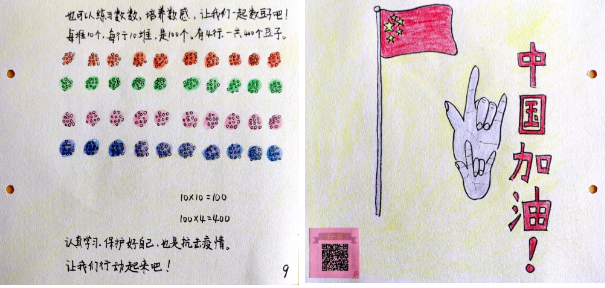 也可以练习数数，培养数感，让我们一起数豆吧！
每堆10个，每行10堆，是100个。有4行，一共400个豆子。
10×10=100
100×4=400
认真学习，保护好自己，也是抗击疫情。
让我们行动起来吧！
9
中国加油！